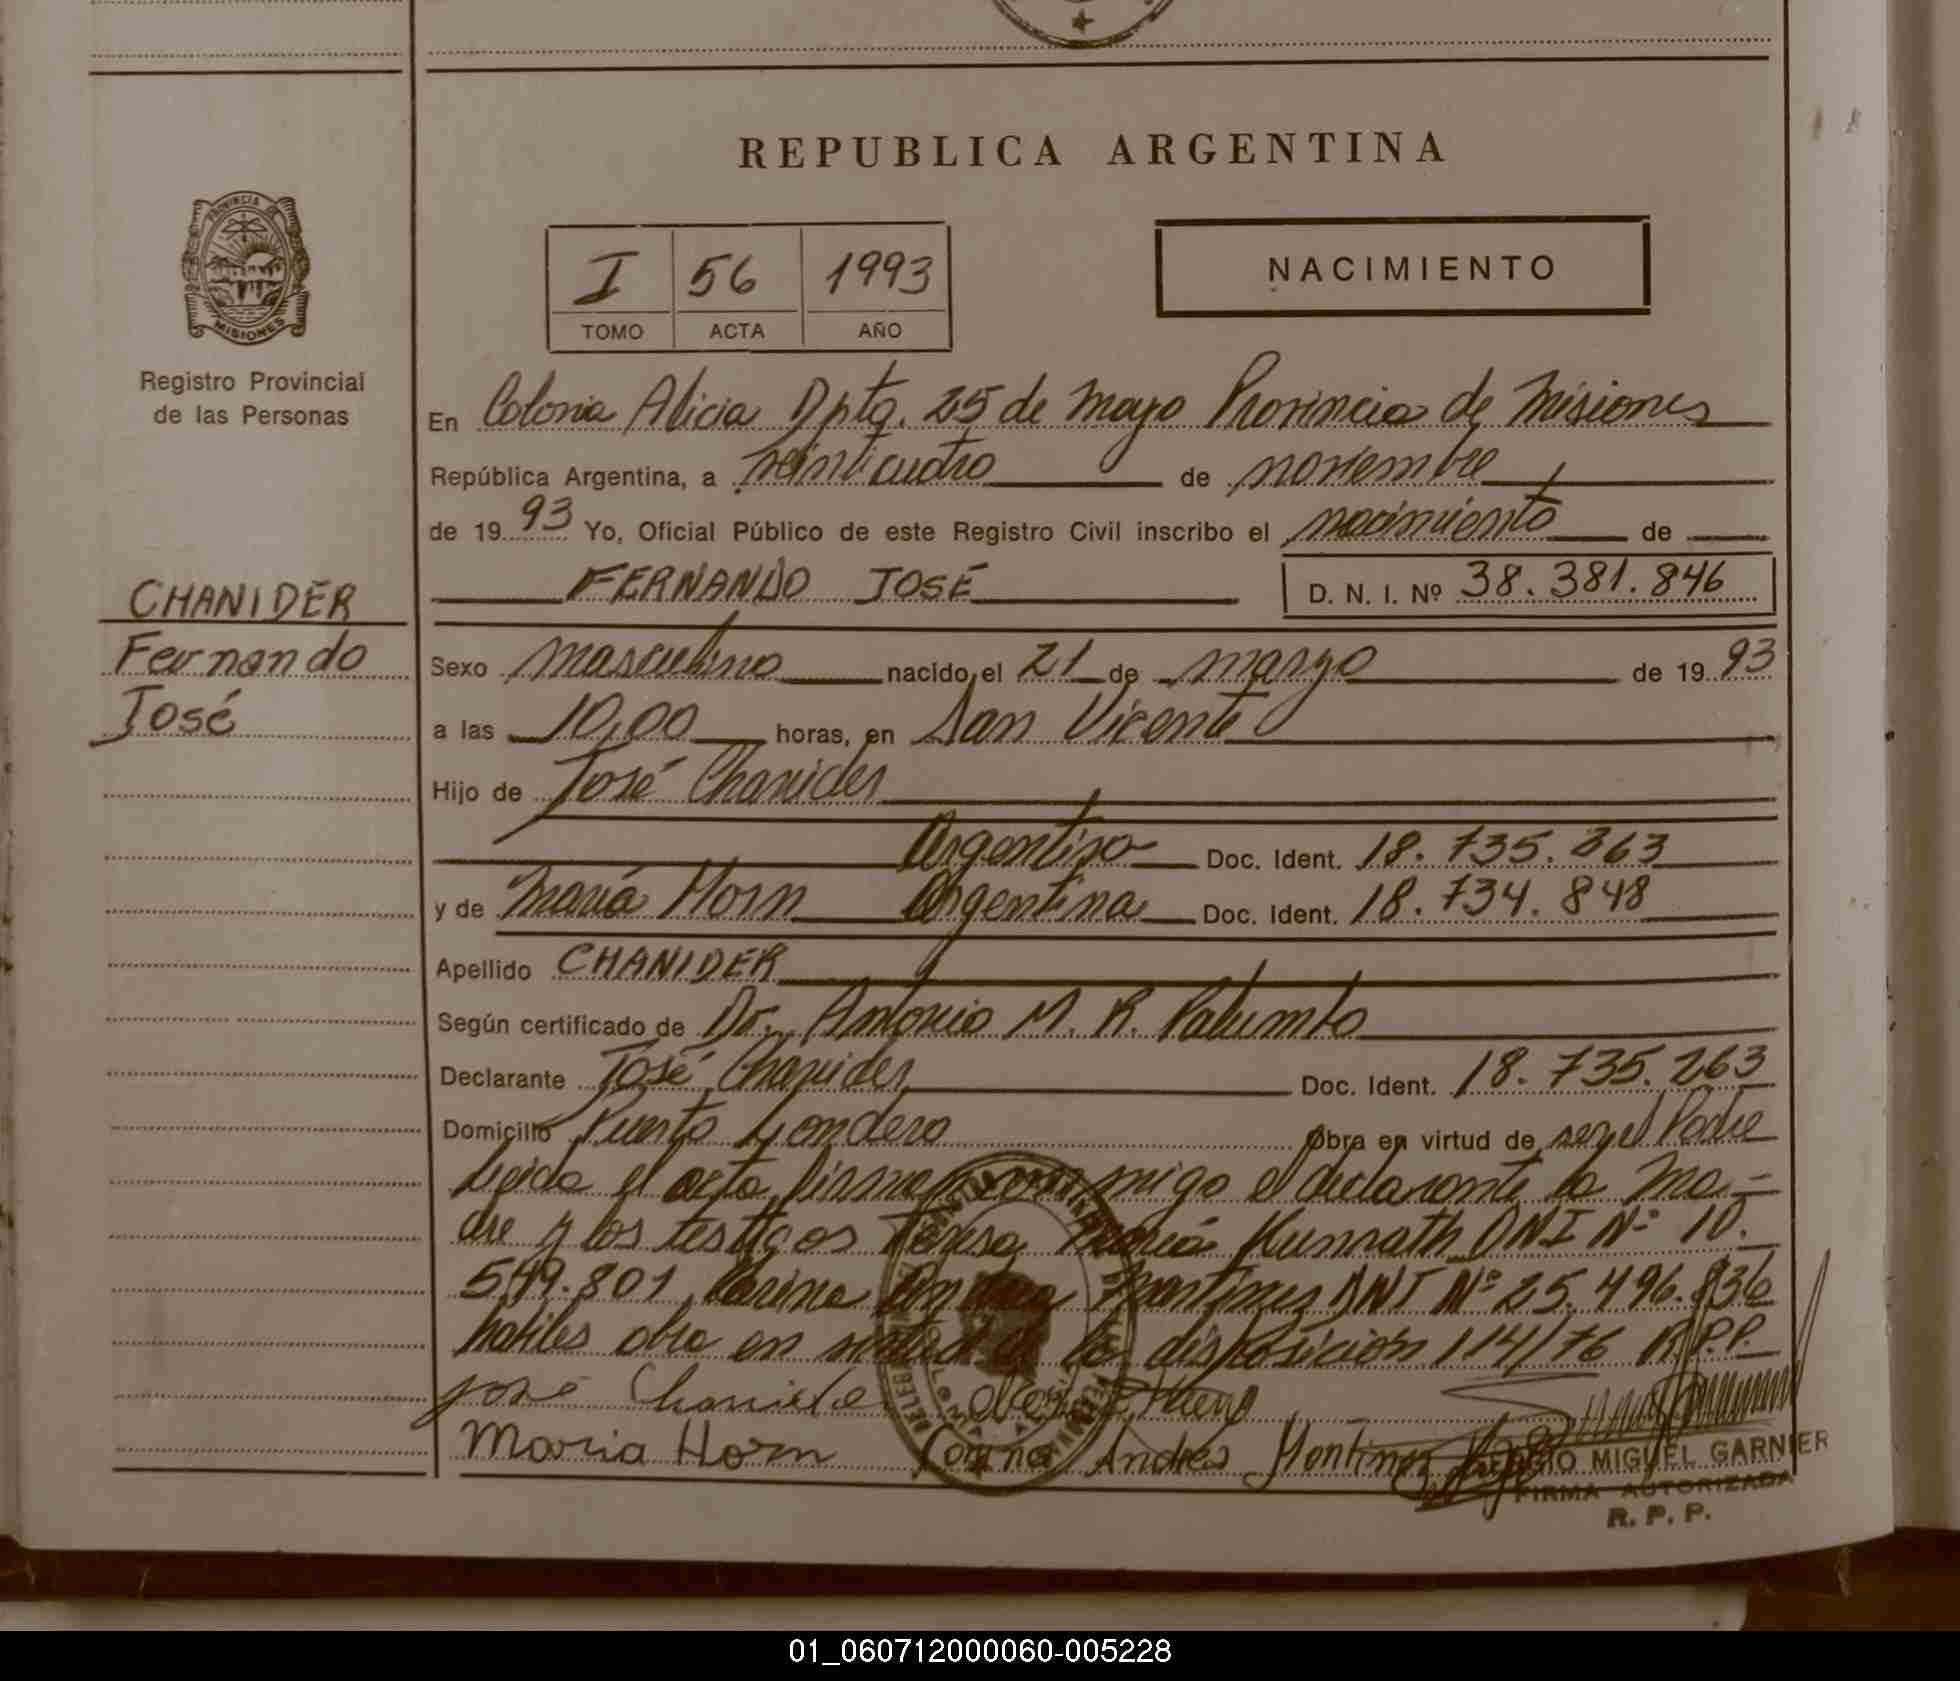 REPUBLICA ARGENTINA
PROVINCIA DE
MISIONES
Registro Provincial
de las Personas
I 56 1993
TOMO ACTA AÑO
NACIMIENTO
En Colonia Alicia Dpto. 25 de Mayo Provincia de Misiones
República Argentina, a veinticuatro de noviembre
de 19 93 Yo, Oficial Público de este Registro Civil inscribo el nacimiento de
FERNANDO JOSÉ D. N. I. Nº 38.381.846
CHANIDER
Fernando
José
Sexo masculino nacido el 21 de marzo de 19 93
a las 10,00 horas, en San Vicente
Hijo de José Chanider
Argentino Doc. Ident. 18.735.263
y de María Horn Argentina Doc. Ident. 18.734.848
Apellido CHANIDER
Según certificado de Dr. Antonio M. R. Palumbo
Declarante José Chanider Doc. Ident. 18.735.263
Domicilio Puerto Londero Obra en virtud de ser el Padre
Leida el acta firman conmigo el declarante la Ma-
dre y los testigos Teresa María Kunrath DNI Nº 10.
549.801 Karina Andrea Martinez DNI Nº 25.496.836
habiles obra en virtud de la disposición 114/76 R.P.P.
José Chanider
Maria Horn Andrea Martinez
SERGIO MIGUEL GARNIER
FIRMA AUTORIZADA
R. P. P.
01_060712000060-005228